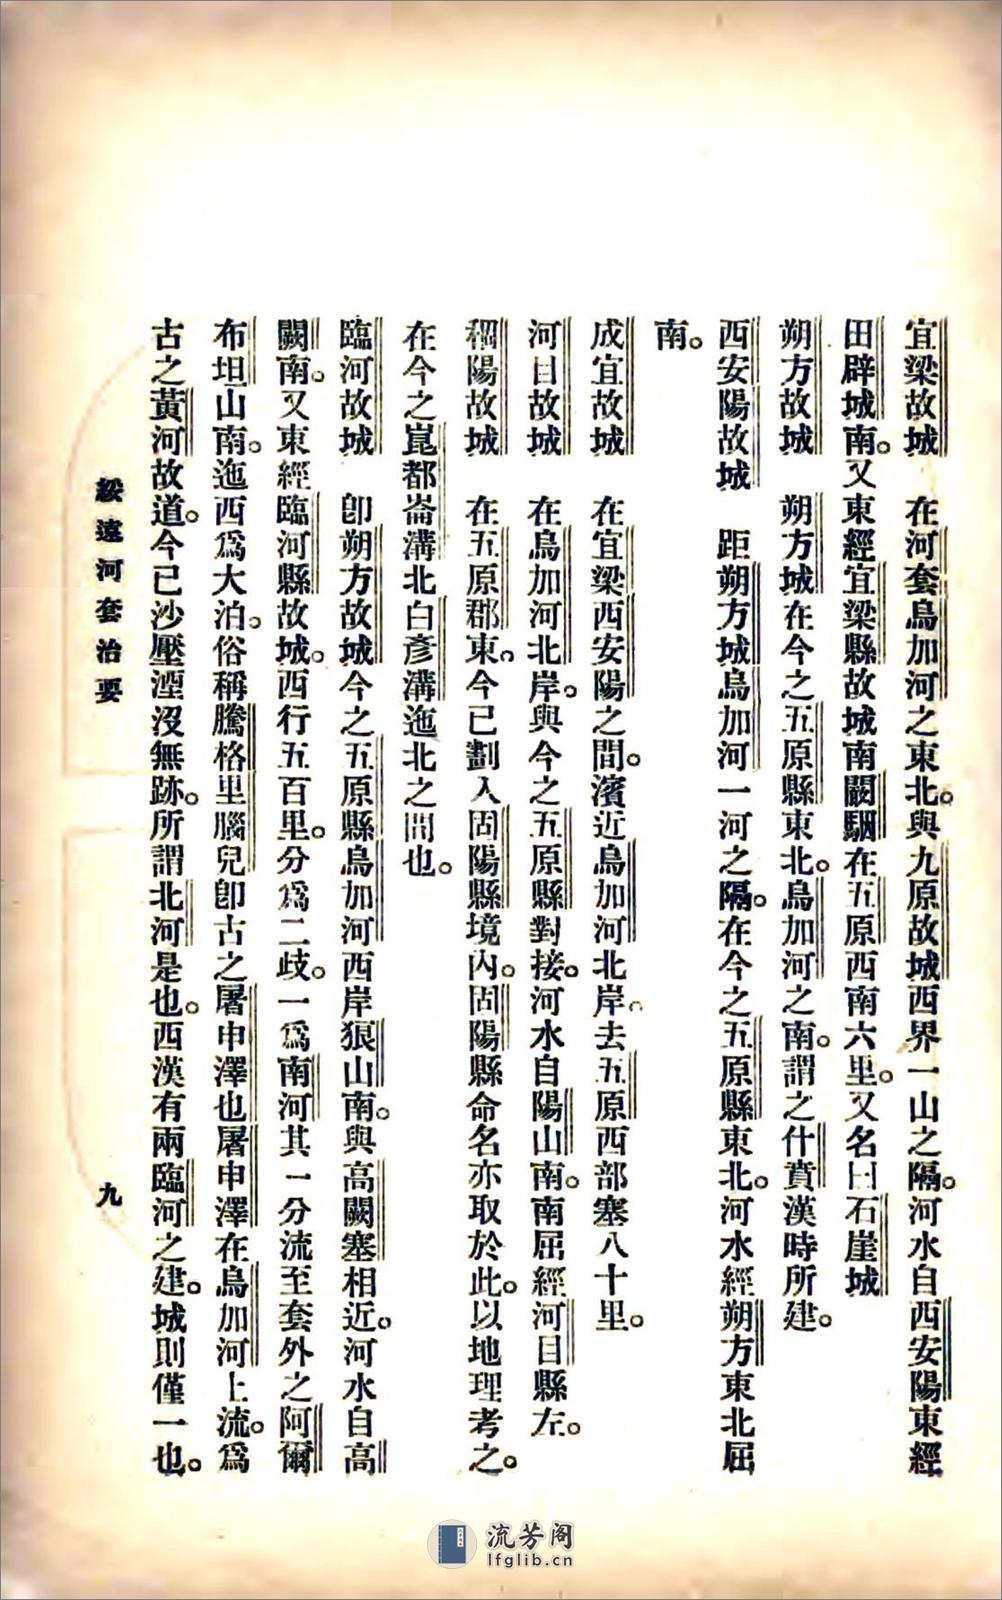 宜梁故城　在河套烏加河之東北。與九原故城西界一山之隔。河水自西安陽東經
田辟城南。又東經宜梁縣故城南闞駰在五原西南六里。又名曰石崖城
朔方故城　朔方城在今之五原縣東北。烏加河之南。謂之什賁漢時所建。
西安陽故城　距朔方城烏加河一河之隔。在今之五原縣東北。河水經朔方東北屈
南。
成宜故城　在宜梁西安陽之間。濱近烏加河北岸。去五原西部塞八十里。
河目故城　在烏加河北岸。與今之五原縣對接。河水自陽山南。南屈經河目縣左。
稒陽故城　在五原郡東。今已劃入固陽縣境內。固陽縣命名亦取於此。以地理考之。
在今之崑都崙溝北白彥溝迤北之間也。
臨河故城　卽朔方故城今之五原縣烏加河西岸狼山南。與高闕塞相近。河水自高
闕南。又東經臨河縣故城。西行五百里。分爲二歧。一爲南河其一分流至套外之阿爾
布坦山南。迤西爲大泊。俗稱騰格里腦兒卽古之屠申澤也屠申澤在烏加河上流。爲
古之黃河故道。今已沙壓湮沒無跡。所謂北河是也。西漢有兩臨河之建。城則僅一也。
綏遠河套治要
九
流芳阁
lfglib.cn